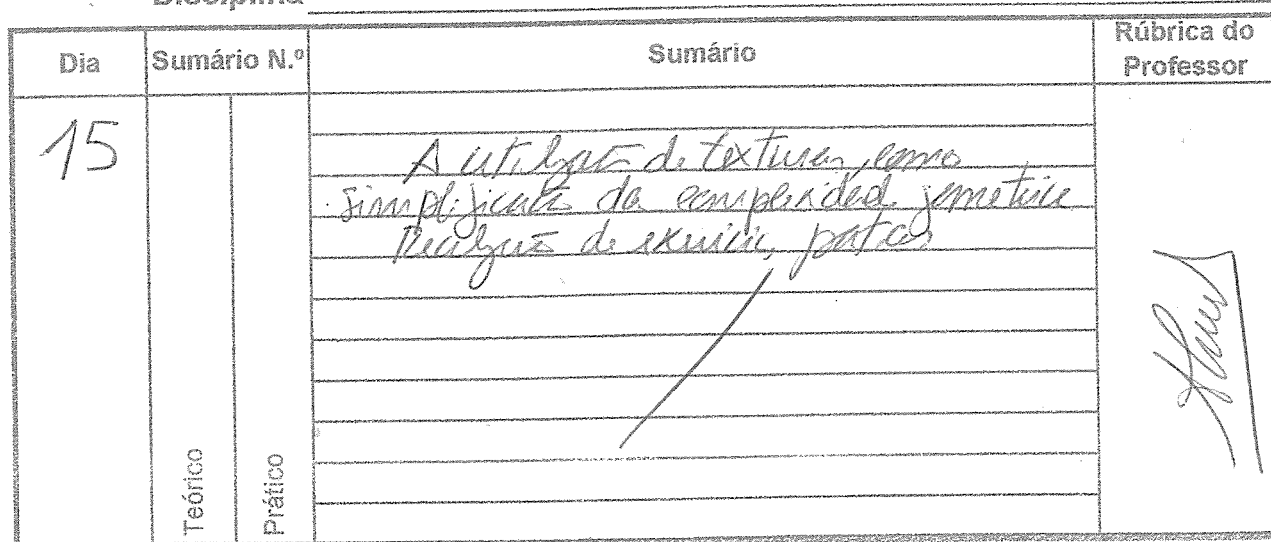 Disciplina
Dia
Sumário N.º
Sumário
Rúbrica do
Professor
15
A utilização de texturas, como
simplificação da complexidade geométrica
Realização de exercícios práticos
Teórico
Prático